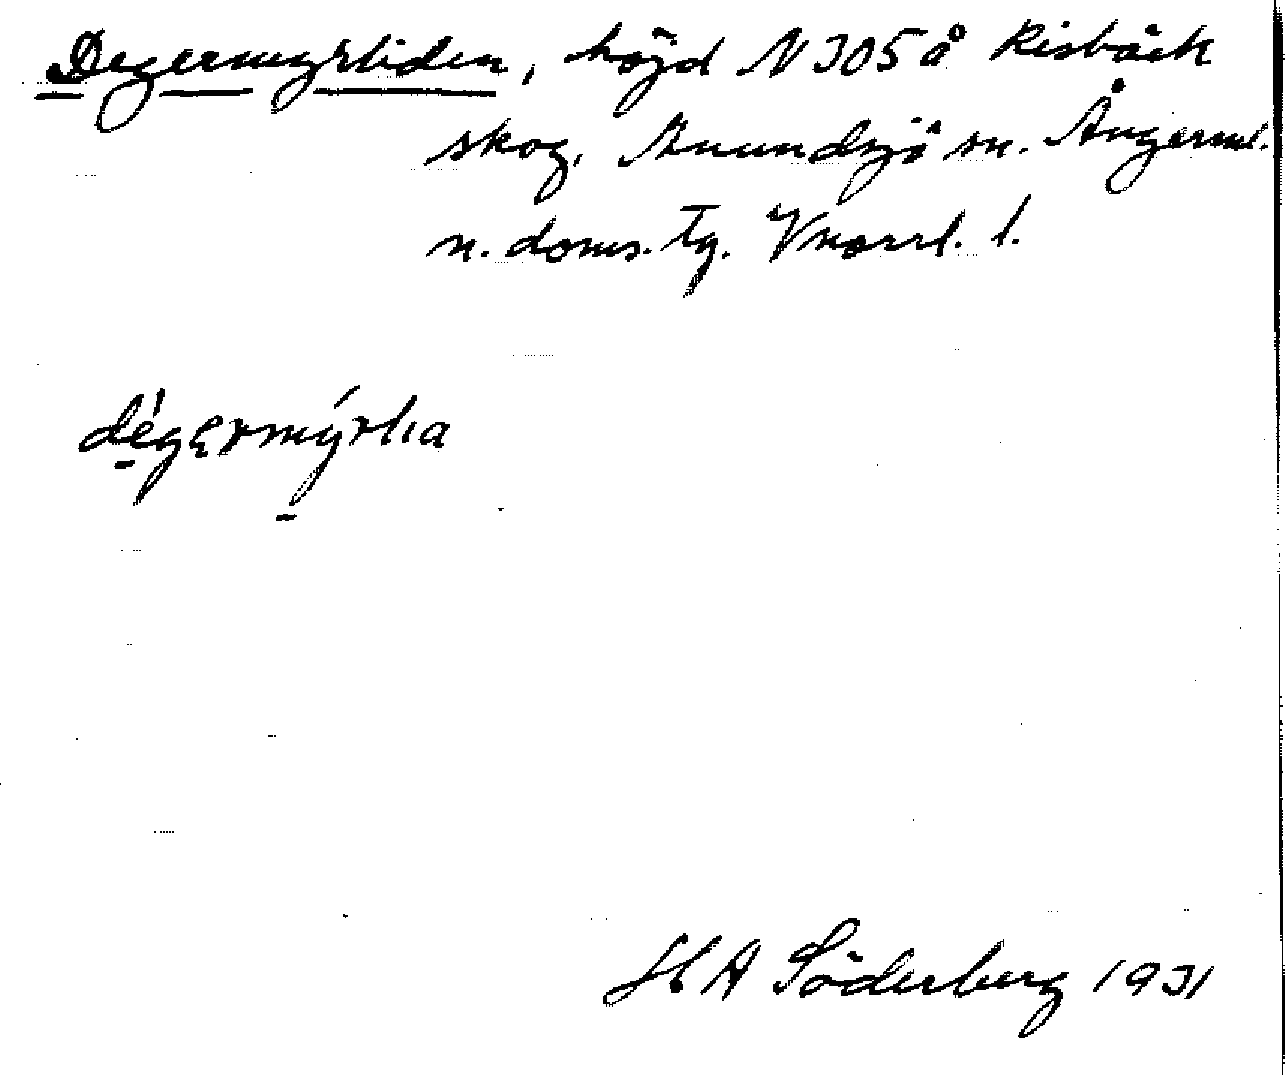 Degermyrliden, höjd N 305 å Risbäck
skog, Anundsjö sn. Ångerml.
n. doms. tg. Vnorrl. l.
dégермýrlıa
H A Söderberg 1931